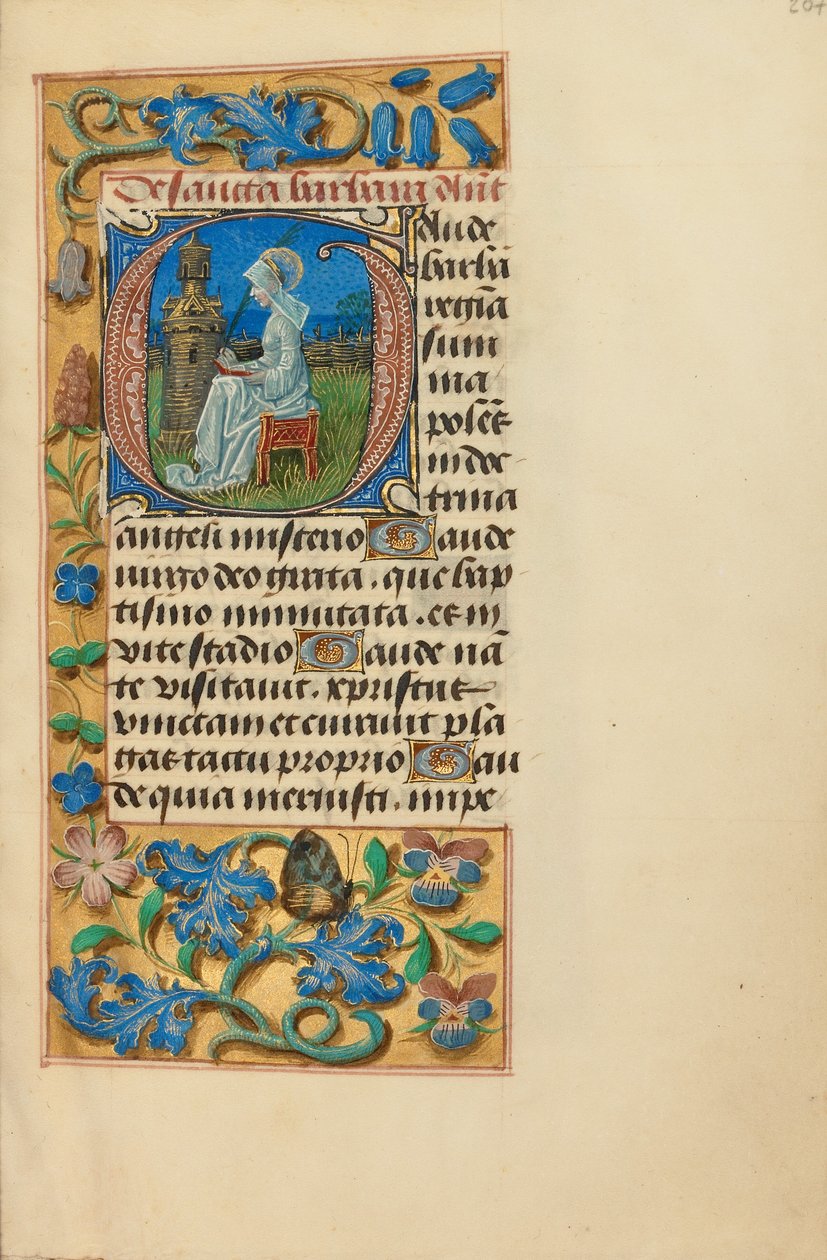 207
De sancta barbara añt
Gaude
barbā
regia
sum
ma
polēs
in doc
trina
angeli misterio Gaude
virgo deo grata. que bap
tismo immutata. es in
vite stadio Gaude nā
te visitavit. xpristus
vinctam et curavit pla
gas tactu proprio Gau
de quia meruisti. impe